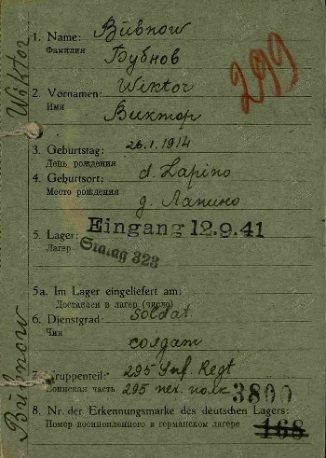 Bübnow Wiktor
299
1. Name: Bübnow
Фамилия Бубнов
2. Vornamen: Wiktor
Имя Виктор
3. Geburtstag: 26.1.1914
День рождения
4. Geburtsort: d. Lapino
Место рождения д. Лапино
5. Lager: Eingang 12.9.41
Лагерь Stalag 323
5a. Im Lager eingeliefert am:
Доставлен в лагерь (число)
6. Dienstgrad: Soldat
Чин солдат
7. Truppenteil: 295 Inf. Regt
Воинская часть 295 пех. полк 3800
8. Nr. der Erkennungsmarke des deutschen Lagers:
Номер военнопленного в германском лагере 168